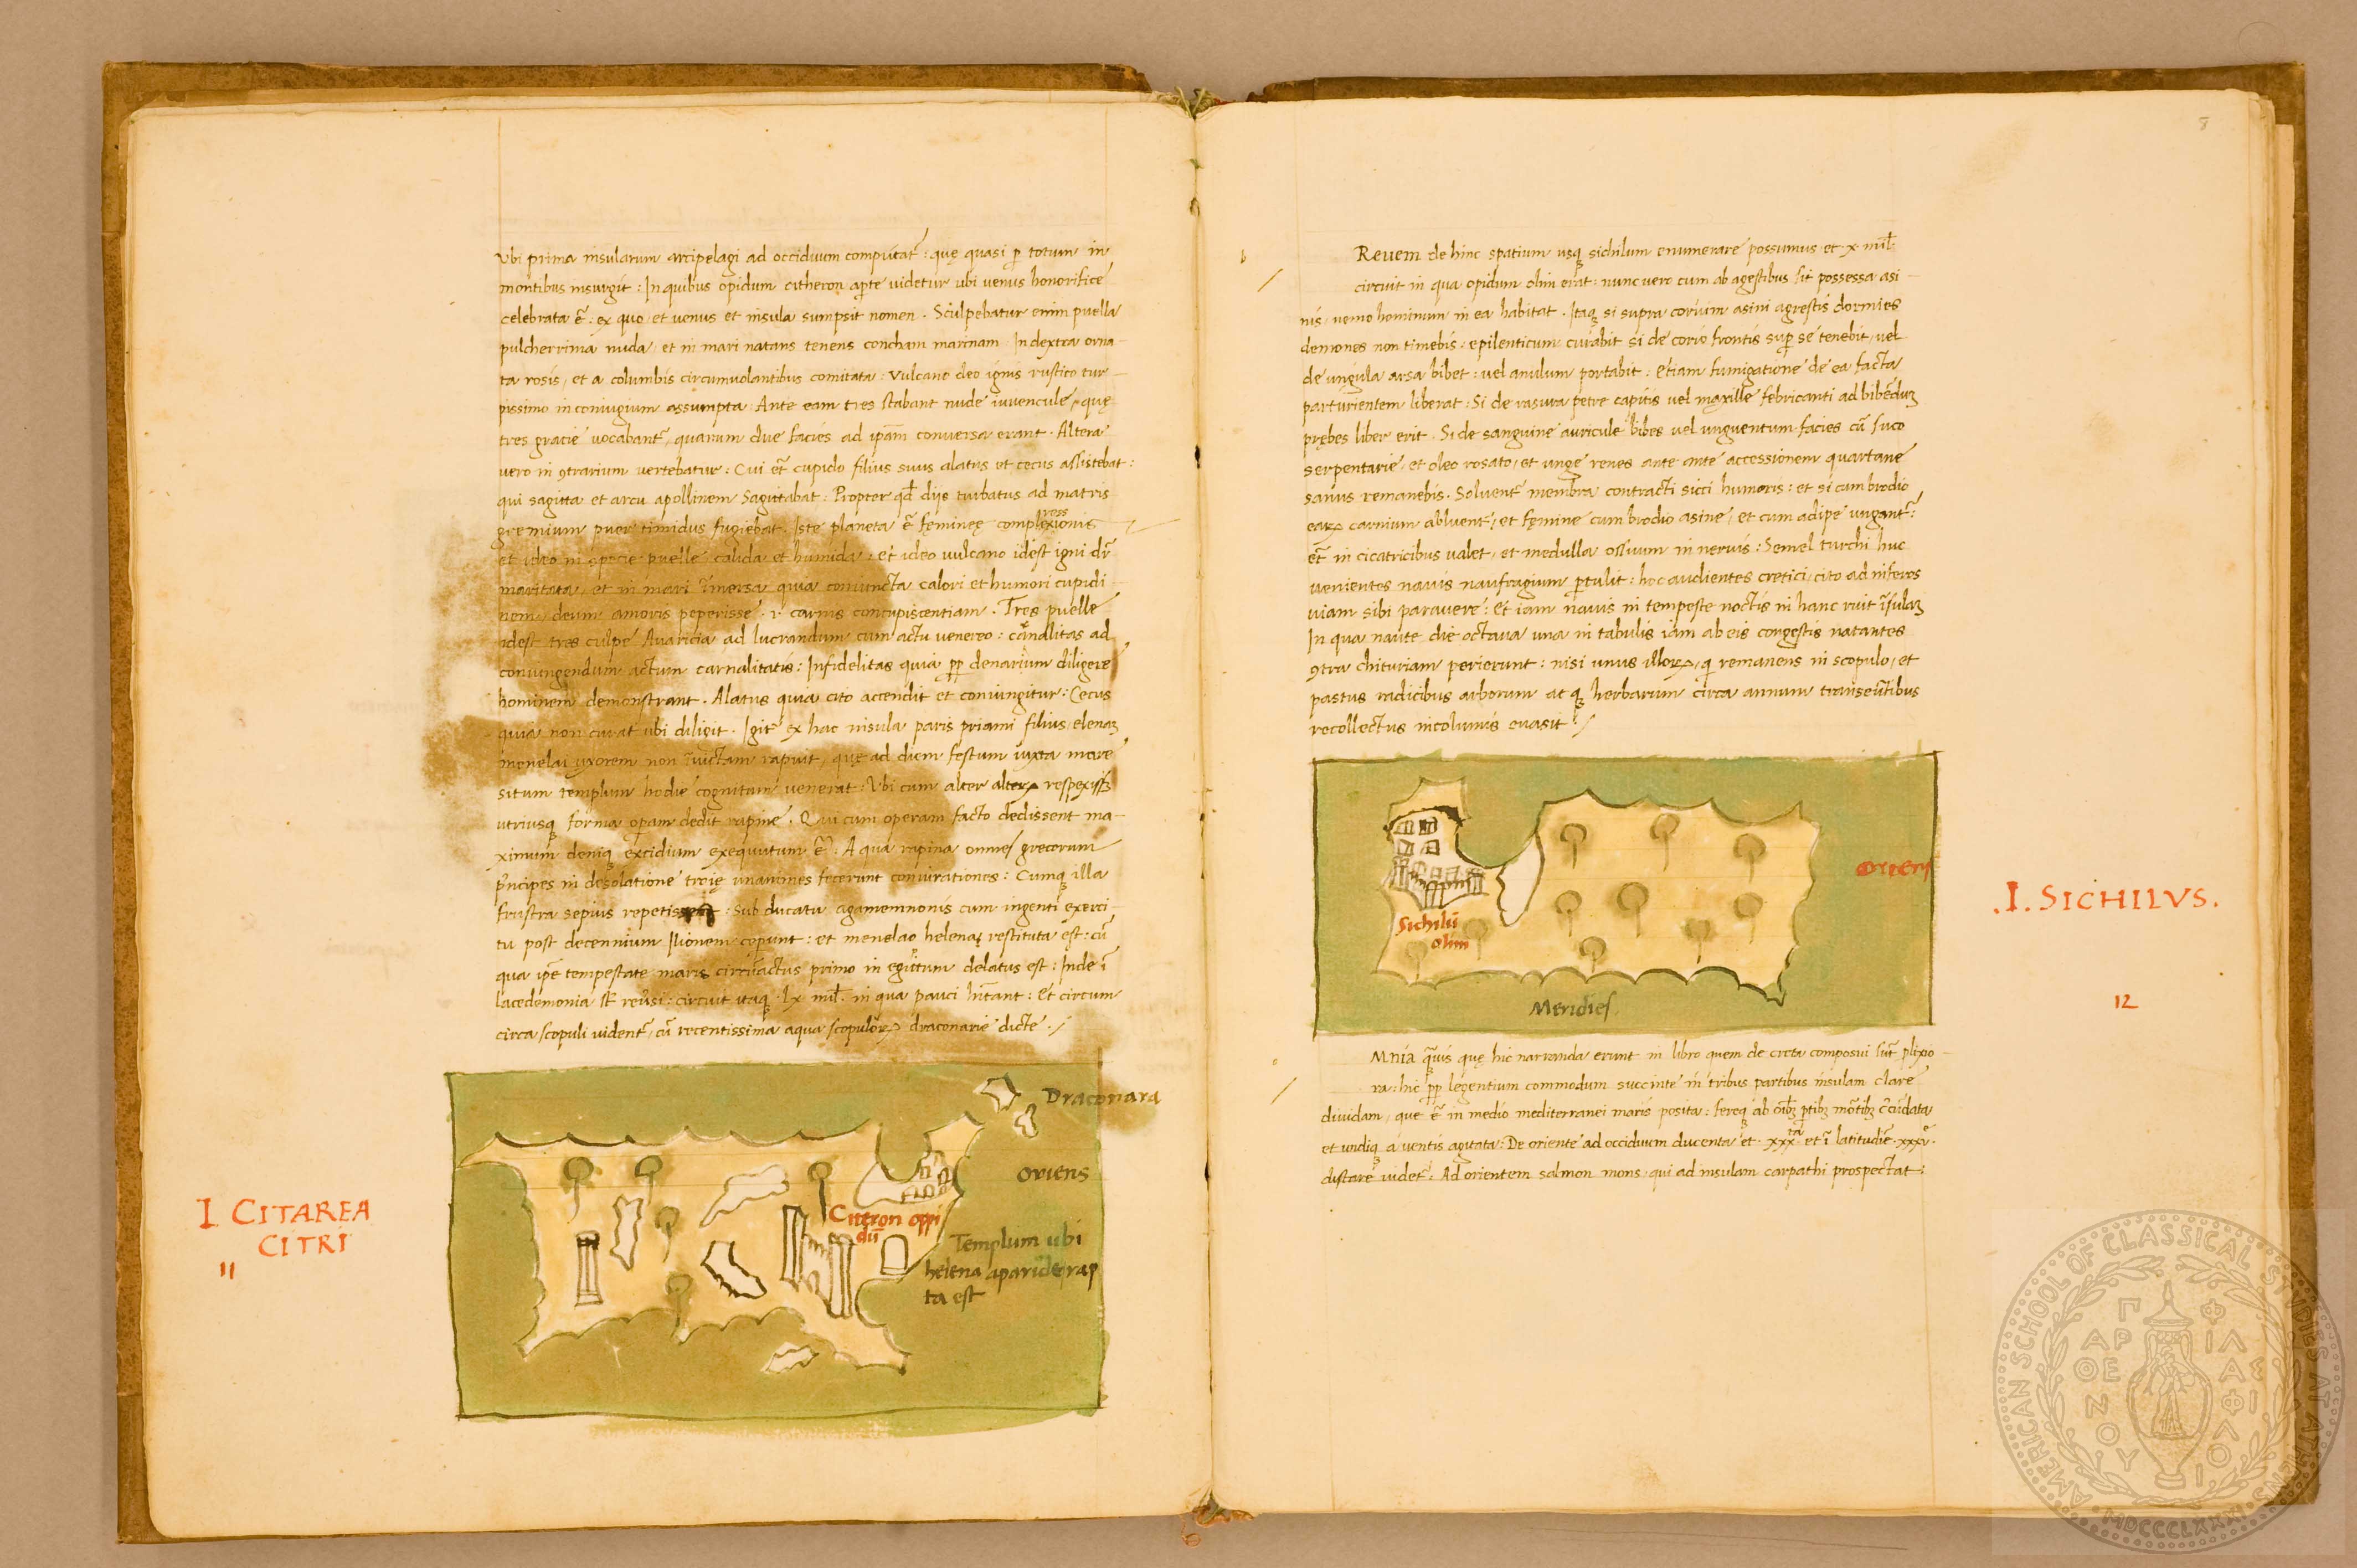 Vbi prima insularum arcipelagi ad occiduum computat̃: quę quasi p totum in
montibus insurgit: In quibus opidum citheron apte videtur ubi venus honorifice
celebrata ē: ex quo et venus et insula sumpsit nomen. Sculpebatur enim puella
pulcherrima nuda et in mari natans tenens concham marinam In dextra orna-
ta rosis, et a columbis circumuolantibus comitata: Vulcano deo ignis rustico tur-
pissimo in coniugium assumpta: Ante eam tres stabant nude iuvencule, quę
tres gracie vocabant̃, quarum due facies ad ip̃am conversa erant. Altera
vero in ꝯtrarium vertebatur: Cui et̃ cupido filius suus alatus et cecus assistebat:
qui sagitta et arcu apollinem sagittabat: Propter qđ dijs turbatus ad matris
gremium puer timidus fugiebat. Iste planeta ē feminę complexionis
et ideo in specie puelle calida et humida: et ideo vulcano idest igni dr̃
maritata, et in mari ĩmersa quia coniuncta calori et humori cupidi-
nem deum amoris peperisse .i. carnis concupiscentiam. Tres puelle
idest tres culpe Auaricia ad lucrandum cum actu venereo: carnalitas ad
coniungendum actum carnalitatis: Infidelitas quia pp denarium diligere
hominem demonstrant. Alatus quia cito accendit et coniungitur: Cecus
quia non curat ubi diligit. Igit̃ ex hac insula paris priami filius elenaꝫ
menelai uxorem non ĩuictam rapuit, quę ad diem festum iuxta mare
situm templum hodie cognitum venerat: Vbi cum alter alterꝝ respexissꝫ
utriusqꝫ forma opam dedit rapine. Qui cum operam facto dedissent ma-
ximum deniqꝫ excidium exequutum ē: A qua rapina omnes grecorum
pncipes in desolatione troię unanimes fecerunt coniurationes: Cumqꝫ illa
frustra sepius repetissent: sub ducatu agamemnonis cum ingenti exerci-
tu post decennium Ilionem cepunt: et menelao helenaꝫ restituta est: cũ
qua ip̃e tempestate maris circũactus primo in egittum delatus est: Inde ĩ
lacedemonia st̃ reũsi: circuit itaqꝫ .lx mil̃. in qua pauci hĩtant: Et circum
circa scopuli vident̃, cũ recentissima aqua scopulorꝝ draconarie dicte./
Draconara
oriens
Citeron oppi
dũ
Templum ubi
helena a paride rap
ta est
I CITAREA
CITRI
11
8
b
Revem de hinc spatium usqꝫ sichilum enumerare possumus et .x. mil̃
circuit in qua opidum olim erat: nunc vero cum ab agestibus sit possessa asi-
nis nemo hominum in ea habitat. Itaqꝫ si supra corium asini agrestis dormies
demones non timebis: epilenticum curabit si de corio frontis sup se tenebit, vel
de ungula arsa bibet: vel anulum portabit: Etiam fumigatione de ea facta
parturientem liberat: Si de rasura petre capitis vel maxille febricanti ad bibẽduꝫ
prębes liber erit. Si de sanguine auricule bibes vel unguentum facies cũ suco
serpentarie, et oleo rosato, et unge renes ante ante accessionem quartane
sanus remanebis. Solvent̃ membra contracti sicci humoris: et si cum brodio
eaꝝ carnium abluent̃, et femine cum brodio asine, et cum adipe ungant̃:
et̃ in cicatricibus valet, et medulla ossium in nervis: Semel turchi huc
venientes navis naufragium ptulit: hoc audientes cretici, cito ad inferos
viam sibi paravere: Et iam navis in tempeste noctis in hanc ruit ĩsulaꝫ
In qua naute die octava una in tabulis iam ab eis congestis natantes
ꝯtra chituriam perierunt: nisi unus illorꝝ, qi remanens in scopulo, et
pastus radicibus arborum atqꝫ herbarum circa annum transeũtibus
recollectus incolumis evasit:/
Oriens
Sichilũ
olim
Meridies
.I. SICHILVS.
12
o
Mnia quãvis quę hic narranda erunt in libro quem de creta composui sũt plixio-
ra: hic pp legentium commodum succinte in tribus partibus insulam clare
dividam, que ē in medio mediterranei maris posita: fereqꝫ ab oĩbꝫ ptibꝫ mõtibꝫ cĩcũdata
et undiqꝫ a ventis agitata: De oriente ad occiduum ducenta et .xxx. et ĩ latitudiẽ .xxxv.
distare videt̃: Ad orientem salmon mons, qui ad insulam carpathi prospectat:
AMERICAN SCHOOL OF CLASSICAL STUDIES AT ATHENS
MDCCCLXXXI
ΠΑΡΘΕΝΟΥ
ΦΙΛΑΣ ΦΙΛΟΙ